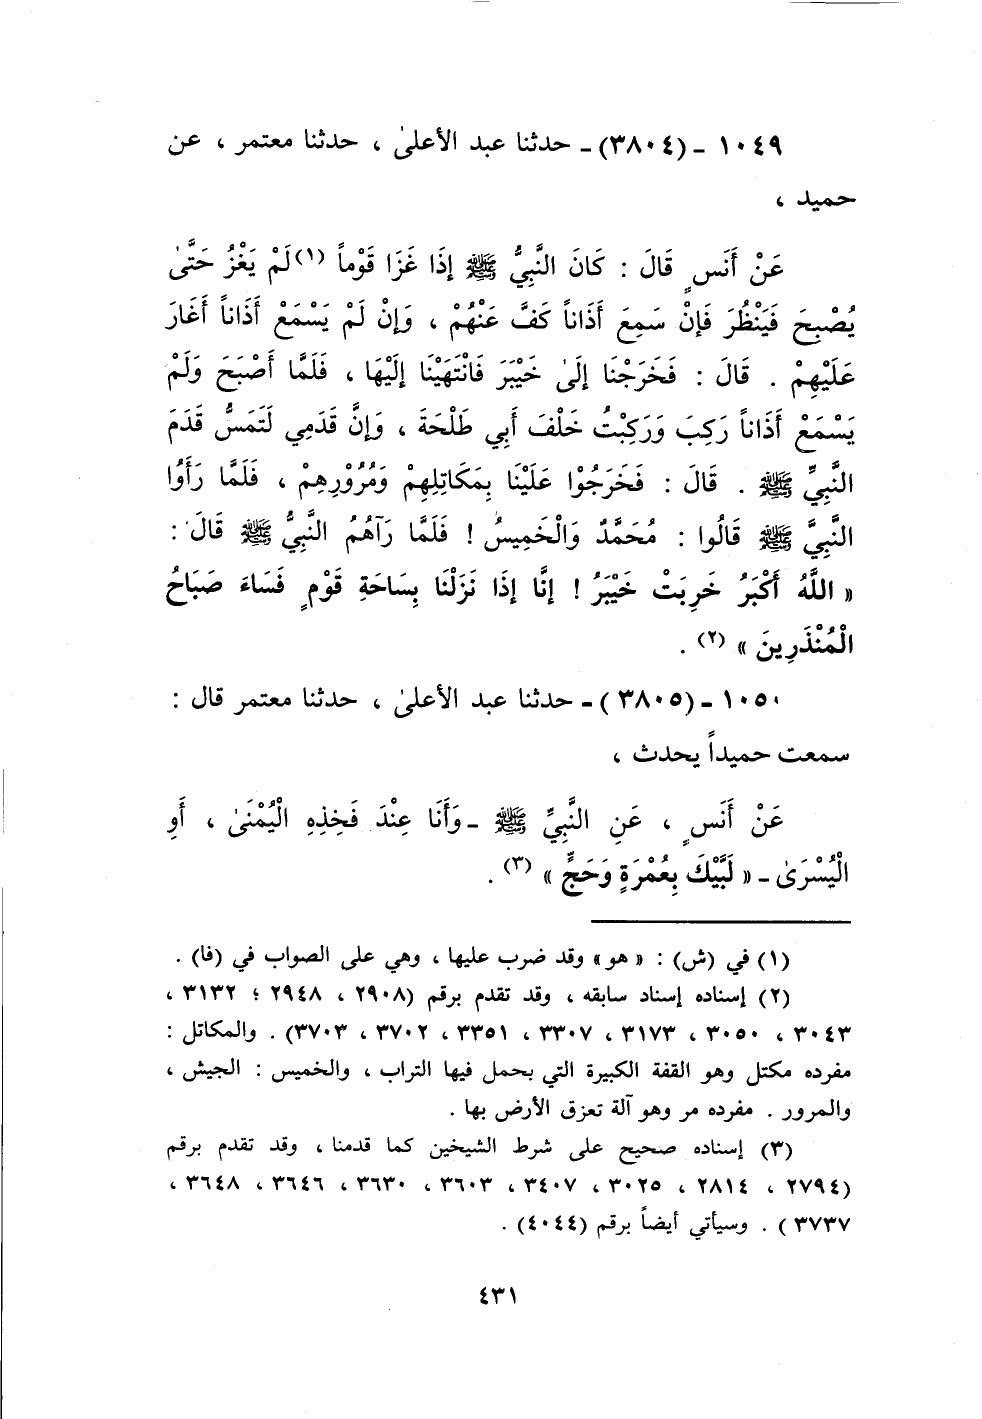 ١٠٤٩ - (٣٨٠٤) - حدثنا عبد الأعلىٰ ، حدثنا معتمر ، عن
حميد ،
عَنْ أَنَسٍ قَالَ : كَانَ النَّبِيُّ ﷺ إِذَا غَزَا قَوْماً (١) لَمْ يَغْزُ حَتَّىٰ
يُصْبِحَ فَيَنْظُرَ فَإِنْ سَمِعَ أَذَاناً كَفَّ عَنْهُمْ ، وَإِنْ لَمْ يَسْمَعْ أَذَاناً أَغَارَ
عَلَيْهِمْ . قَالَ : فَخَرَجْنَا إِلَىٰ خَيْبَرَ فَانْتَهَيْنَا إِلَيْهَا ، فَلَمَّا أَصْبَحَ وَلَمْ
يَسْمَعْ أَذَاناً رَكِبَ وَرَكِبْتُ خَلْفَ أَبِي طَلْحَةَ ، وَإِنَّ قَدَمِي لَتَمَسُّ قَدَمَ
النَّبِيِّ ﷺ . قَالَ : فَخَرَجُوْا عَلَيْنَا بِمَكَاتِلِهِمْ وَمُرُوْرِهِمْ ، فَلَمَّا رَأَوُا
النَّبِيَّ ﷺ قَالُوا : مُحَمَّدٌ وَالْخَمِيسُ ! فَلَمَّا رَآهُمُ النَّبِيُّ ﷺ قَالَ :
« اللَّهُ أَكْبَرُ خَرِبَتْ خَيْبَرُ ! إِنَّا إِذَا نَزَلْنَا بِسَاحَةِ قَوْمٍ فَسَاءَ صَبَاحُ
الْمُنْذَرِينَ » (٢) .
١٠٥٠ - (٣٨٠٥) - حدثنا عبد الأعلىٰ ، حدثنا معتمر قال :
سمعت حميداً يحدث ،
عَنْ أَنَسٍ ، عَنِ النَّبِيِّ ﷺ - وَأَنَا عِنْدَ فَخِذِهِ الْيُمْنَىٰ ، أَوِ
الْيُسْرَىٰ - « لَبَّيْكَ بِعُمْرَةٍ وَحَجٍّ » (٣) .
(١) في (ش) : « هو » وقد ضرب عليها ، وهي على الصواب في (فا) .
(٢) إسناده إسناد سابقه ، وقد تقدم برقم (٢٩٠٨ ، ٢٩٤٨ ؛ ٣١٣٢ ،
٣٠٤٣ ، ٣٠٥٠ ، ٣١٧٣ ، ٣٣٠٧ ، ٣٣٥١ ، ٣٧٠٢ ، ٣٧٠٣) . والمكاتل :
مفرده مكتل وهو القفة الكبيرة التي يحمل فيها التراب ، والخميس : الجيش ،
والمرور . مفرده مر وهو آلة تعزق الأرض بها .
(٣) إسناده صحيح على شرط الشيخين كما قدمنا ، وقد تقدم برقم
(٢٧٩٤ ، ٢٨١٤ ، ٣٠٢٥ ، ٣٤٠٧ ، ٣٦٠٣ ، ٣٦٣٠ ، ٣٦٤٦ ، ٣٦٤٨ ،
٣٧٣٧) . وسيأتي أيضاً برقم (٤٠٤٤) .
٤٣١